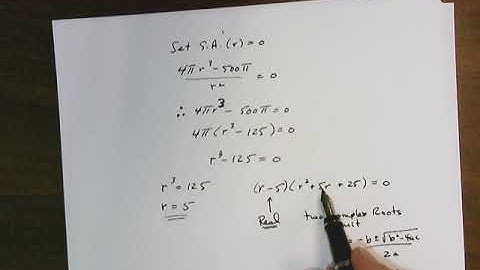 Set S.A.'(r) = 0
4πr³ - 500π / r² = 0
∴ 4πr³ - 500π = 0
4π(r³ - 125) = 0
r³ - 125 = 0
r³ = 125
r = 5
(r - 5)(r² + 5r + 25) = 0
↑
Real
Roots
-b ± √b² - 4ac
2a